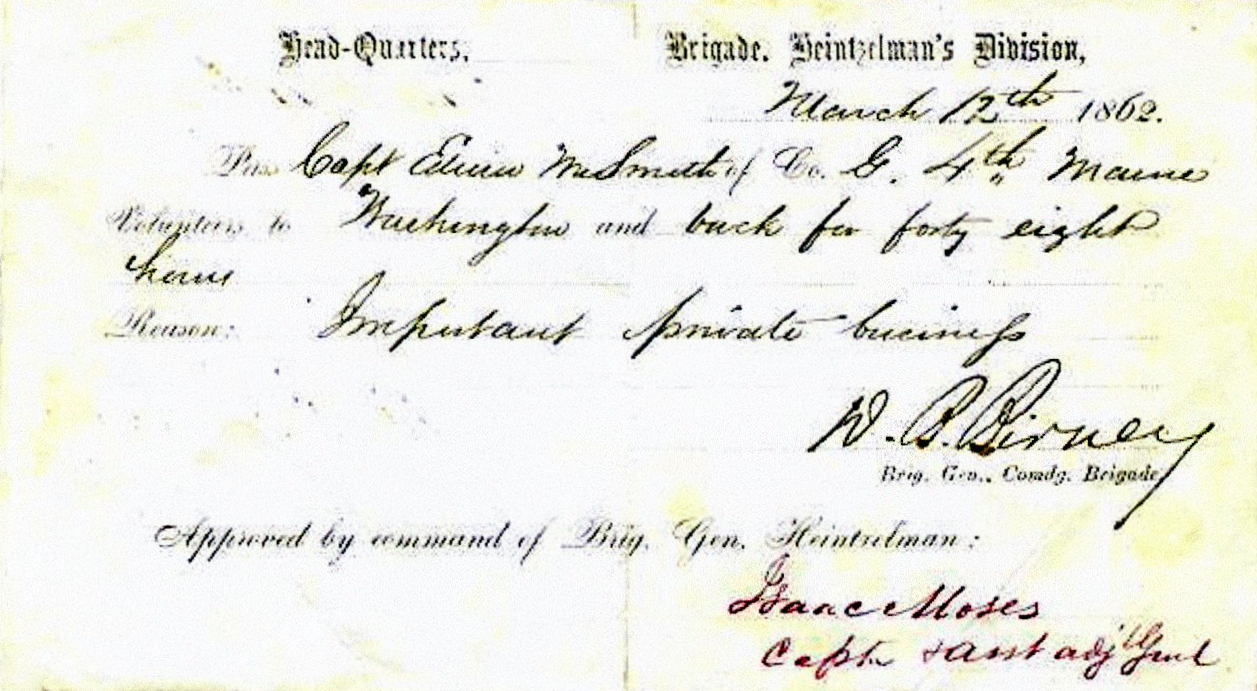 Head-Quarters, Brigade. Heintzelman's Division,
March 12th 1862.
Pass Capt Edwin M. Smith of Co. G. 4th Maine
Volunteers to Washington and back for forty eight
hours
Reason: Important private business
D. B. Birney
Brig. Gen., Comdg. Brigade
Approved by command of Brig. Gen. Heintzelman:
Isaac Moses
Capt & Asst adjt Genl